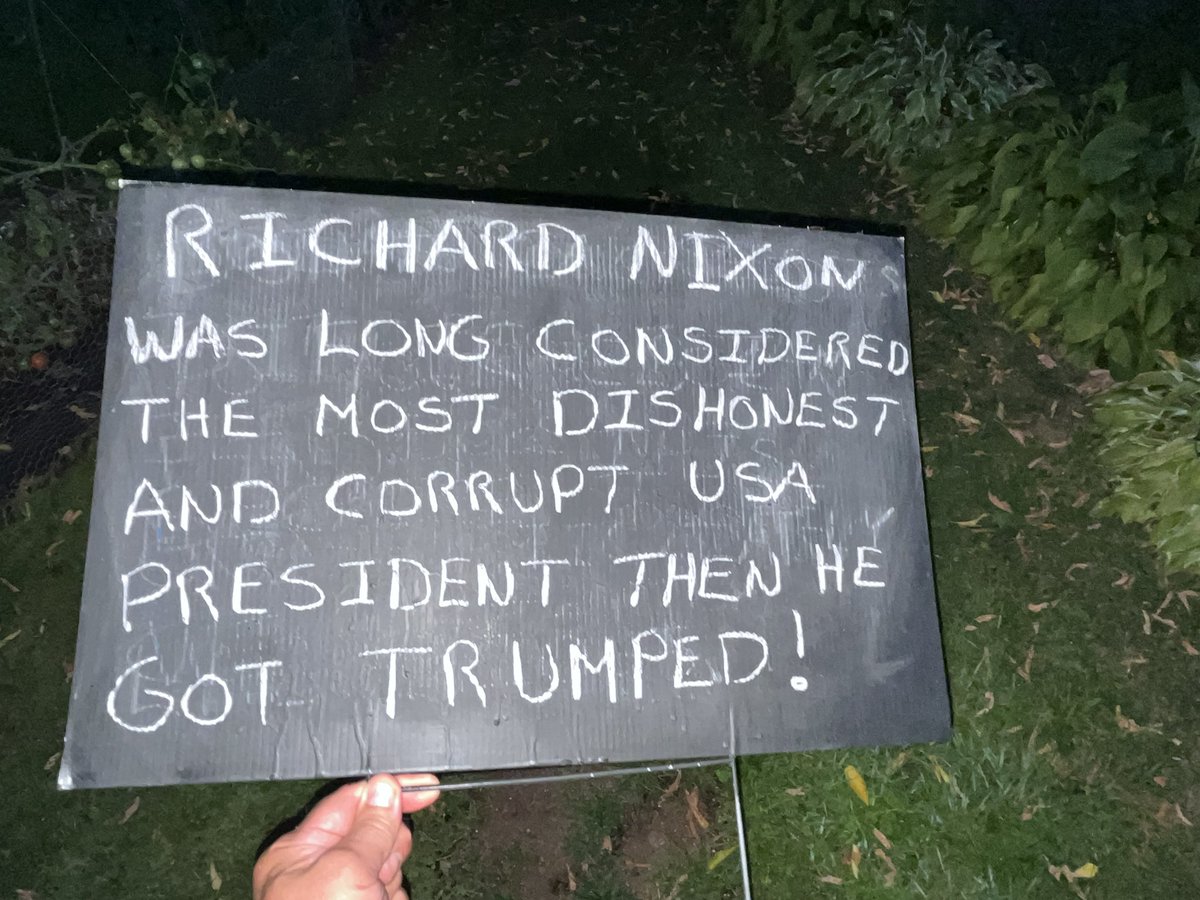 RICHARD NIXON
WAS LONG CONSIDERED
THE MOST DISHONEST
AND CORRUPT USA
PRESIDENT THEN HE
GOT TRUMPED!